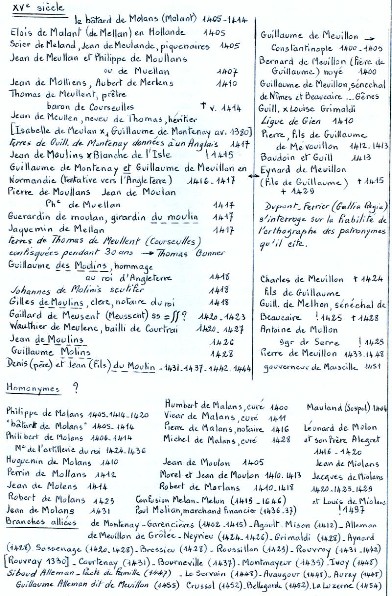 XVe siècle
le bâtard de Molans (Molant) 1405-1414
Elois de Malant (de Mellan) en Hollande 1405
Soier de Meland, Jean de Meulande, piquenaires 1405
Jean de Meullan et Philippe de Moullans
ou de Muellan 1407
Jean de Molliens, Aubert de Merkens 1410
Thomas de Meullent, prêtre
baron de Courseulles † v. 1414
Jean de Meullen, neveu de Thomas, héritier
[Isabelle de Meulan x Guillaume de Montenay av. 1380]
Terres de Guill. de Montenay données à un Anglais 1417
Jean de Moulins x Blanche de l'Isle ! 1415
Guillaume de Montenay et Guillaume de Meuillon en
Normandie (tentative vers l'Angleterre) 1416-1417
Pierre de Moullans Jean de Moulan
Phe de Muellan 1417
Guerardin de moulan, girardin du moulin 1417
Jaquemin de Mellan 1417
Terres de Thomas de Meullent (Courseulles)
confisquées pendant 30 ans → Thomas Bunner
Guillaume des Moulins, hommage
au roi d'Angleterre 1418
Johannes de Molinis scutifer 1418
Gilles de Moulins, clerc, notaire du roi 1418
Gaillard de Meusent (Meussent) ss = ff ? 1420-1423
Wauthier de Meulenc, bailli de Courtrai 1420-1427
Jean de Moulins 1426
Guillaume Molins 1428
Denis (père) et Jean (fils) du Moulin -1431-1437-1442-1444
Guillaume de Meuillon →
Constantinople 1400-1403
Bernard de Meuillon (frère de
Guillaume) noyé 1400
Guillaume de Meuillon, sénéchal
de Nîmes et Beaucaire ... Gênes
Guill. x Louise Grimaldi
Ligue de Gien 1410
Pierre, fils de Guillaume
de Mevouillon 1412-1413
Baudoin et Guill 1413
Eynard de Meuillon
(fils de Guillaume) † 1415
† 1429
Dupont-Ferrier (Gallia Regia)
s'interroge sur la fiabilité de
l'orthographe des patronymes
qu'il cite.
Charles de Meuillon † 1424
fils de Guillaume
Guill. de Melhon, sénéchal de
Beaucaire ! 1425 † 1428
Antoine de Mullon
sgr de Serre ! 1425
Pierre de Meuillon 1433-1448
gouverneur de Marseille 1451
Homonymes ?
Philippe de Molans 1405-1414-1420
"bâtard de Molans" 1405-1414
Philibert de Molans 1404-1414
Me de l'artillerie du roi 1424-1436
Huguenin de Molans 1410
Perrin de Mollans 1412
Jean de Molens 1414
Robert de Molans 1423
Jean de Molans 1431
Humbert de Malans, curé 1400
Vicar de Malans, curé 1411
Pierre de Malans, notaire 1416
Michel de Malans, curé 1428
Jean de Moulon 1405
Norel et Jean de Moulon 1410-1413
Robert de Morlans 1410-1418
Confusion Melan-Melun (1415-1646)
Paul Molian, marchand financier (1436-37)
Mauland (Sospel) 1404
Léonard de Molon
et son frère Alegret
1416-1420
Jean de Miolans
Jacques de Miolans
1420-1423-1425
et Louis de Miolans
! 1457
Branches alliées de Montenay-Garencières (1402-1415)-Agoult-Mison (1412)-Alleman
de Meuillon de Grolée-Neyrieu (1424-1426)-Grimaldi (1428)-Aynard
(1428) Sassenage (1420-1428)-Bressieu (1428)-Roussillon (1429)-Rouvroy (1431-1442)
[Rouvray 1390]-Courtenay (1431)-Bourneville (1437)-Montmayeur (1435)-Ivoy (1448)
Siboud Alleman-Pacte de famille (1447)-Le Sauvain (1447)-Avaugour (1447)-Aurey (1448)
Guillaume Alleman dit de Meuillon (1455) Crussol (1452) Bellegarde (1452) La Luzerne (1454)